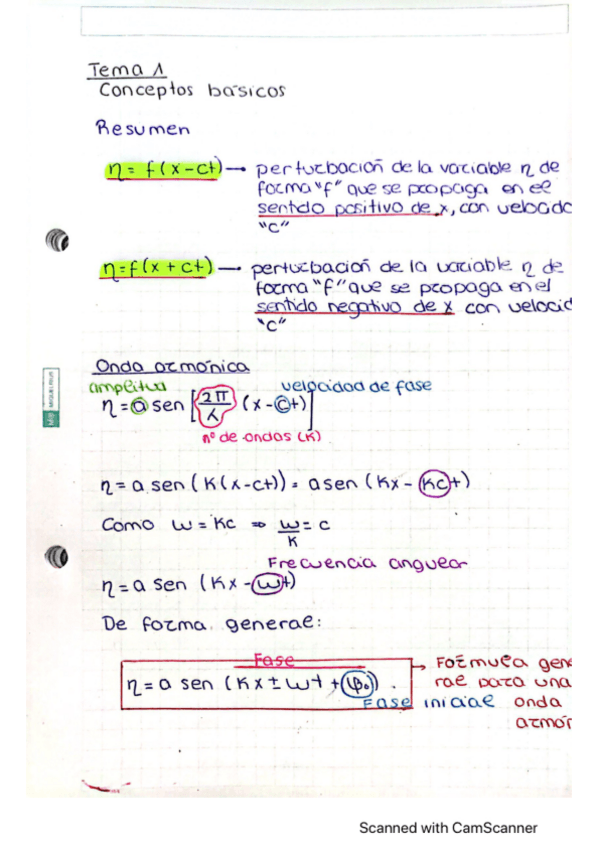 Tema 1
Conceptos básicos
Resumen
η = f(x-ct) → perturbación de la variable η de
forma "f" que se propaga en el
sentido positivo de x, con velocid
"c"
η = f(x+ct) → perturbación de la variable η de
forma "f" que se propaga en el
sentido negativo de x con velocid
"c"
Onda armónica
amplitud velocidad de fase
η = a sen [2π/λ (x-ct)]
nº de ondas (K)
η = a sen (K(x-ct)) = a sen (Kx - Kct)
Como ω = Kc ⇒ ω/K = c
Frecuencia angular
η = a sen (Kx - ωt)
De forma general:
Fase
η = a sen (Kx ± ωt + φ₀).
Fase inicial
→ Fórmula gene
ral para una
onda
armón
MIQUELRIUS
Scanned with CamScanner